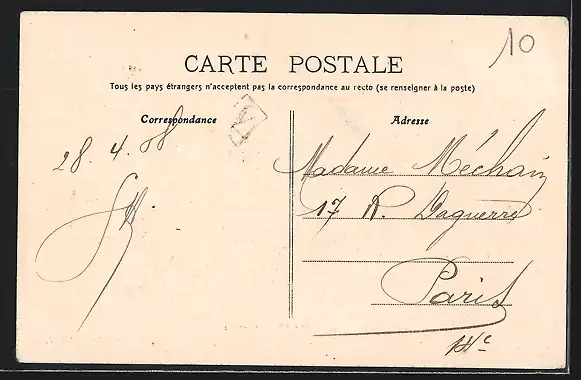 10
CARTE POSTALE
Tous les pays étrangers n'acceptent pas la correspondance au recto (se renseigner à la poste)
Correspondance
Adresse
28. 4. 08
Madame Méchain
17 R. Daguerre
Paris
14e